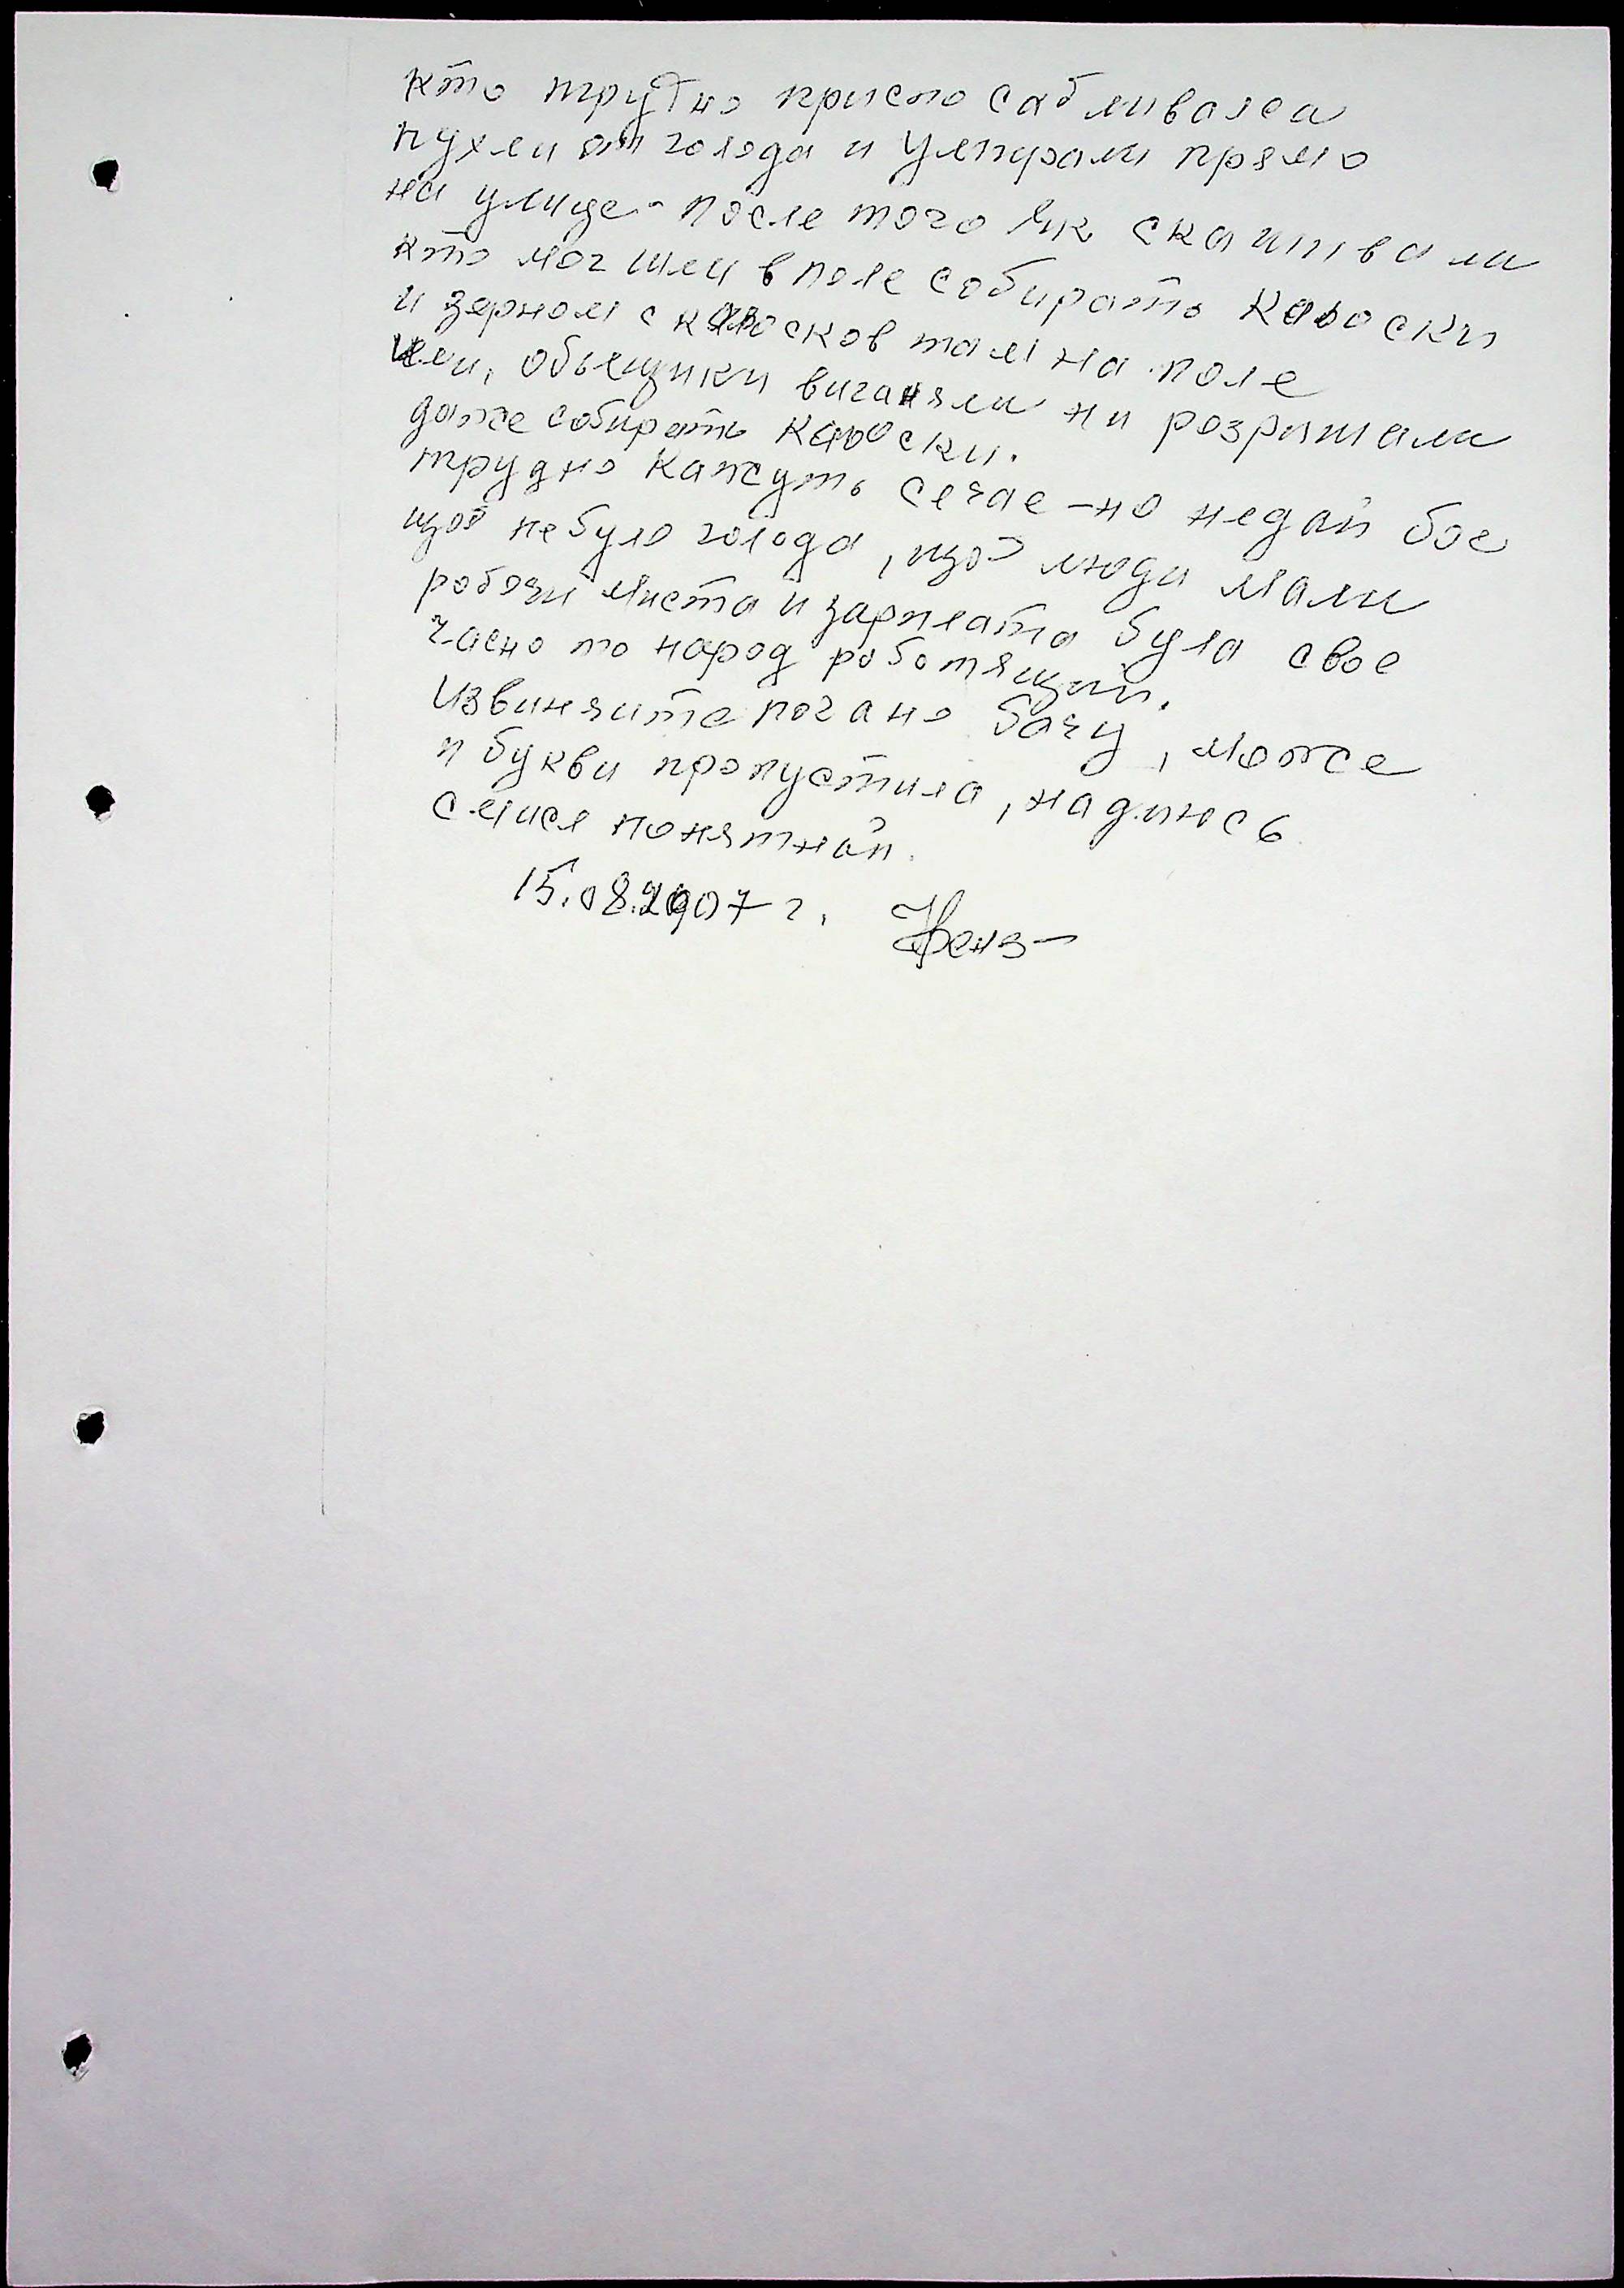 кто трутно приспосабливался
пухли от голода и умирали прямо
на улице - после того як скашивали
кто мог шли в поле собирать калоски
и зерном с калосков там на поле
или, обьещики виганяли ни розришали
даже собирать калоски.
трудно кажуть сечас - но недай бог
щоб небуло голода, щоб люди мали
робочи миста и зарплата була свое
часно то народ роботящий.
Извиняйте погано бачу, може
и букви пропустила, надиюсь
смисл понятной.
15.08.2007 г.